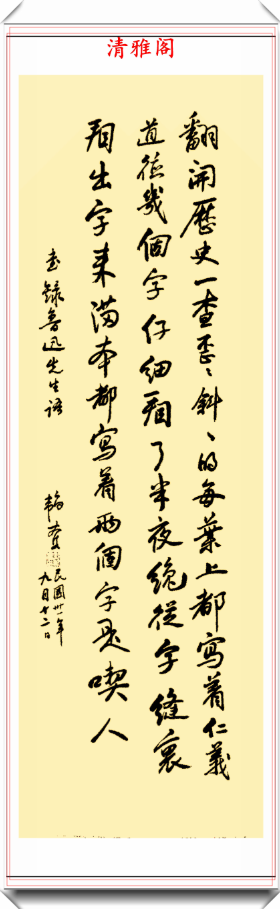 清雅阁
翻開歷史一查歪々斜々的每葉上都寫着仁義
道德幾個字仔細看了半夜纔從字縫裏
看出字來滿本都寫着兩個字是喫人
書錄魯迅先生語
民國卅一年
九月十二日